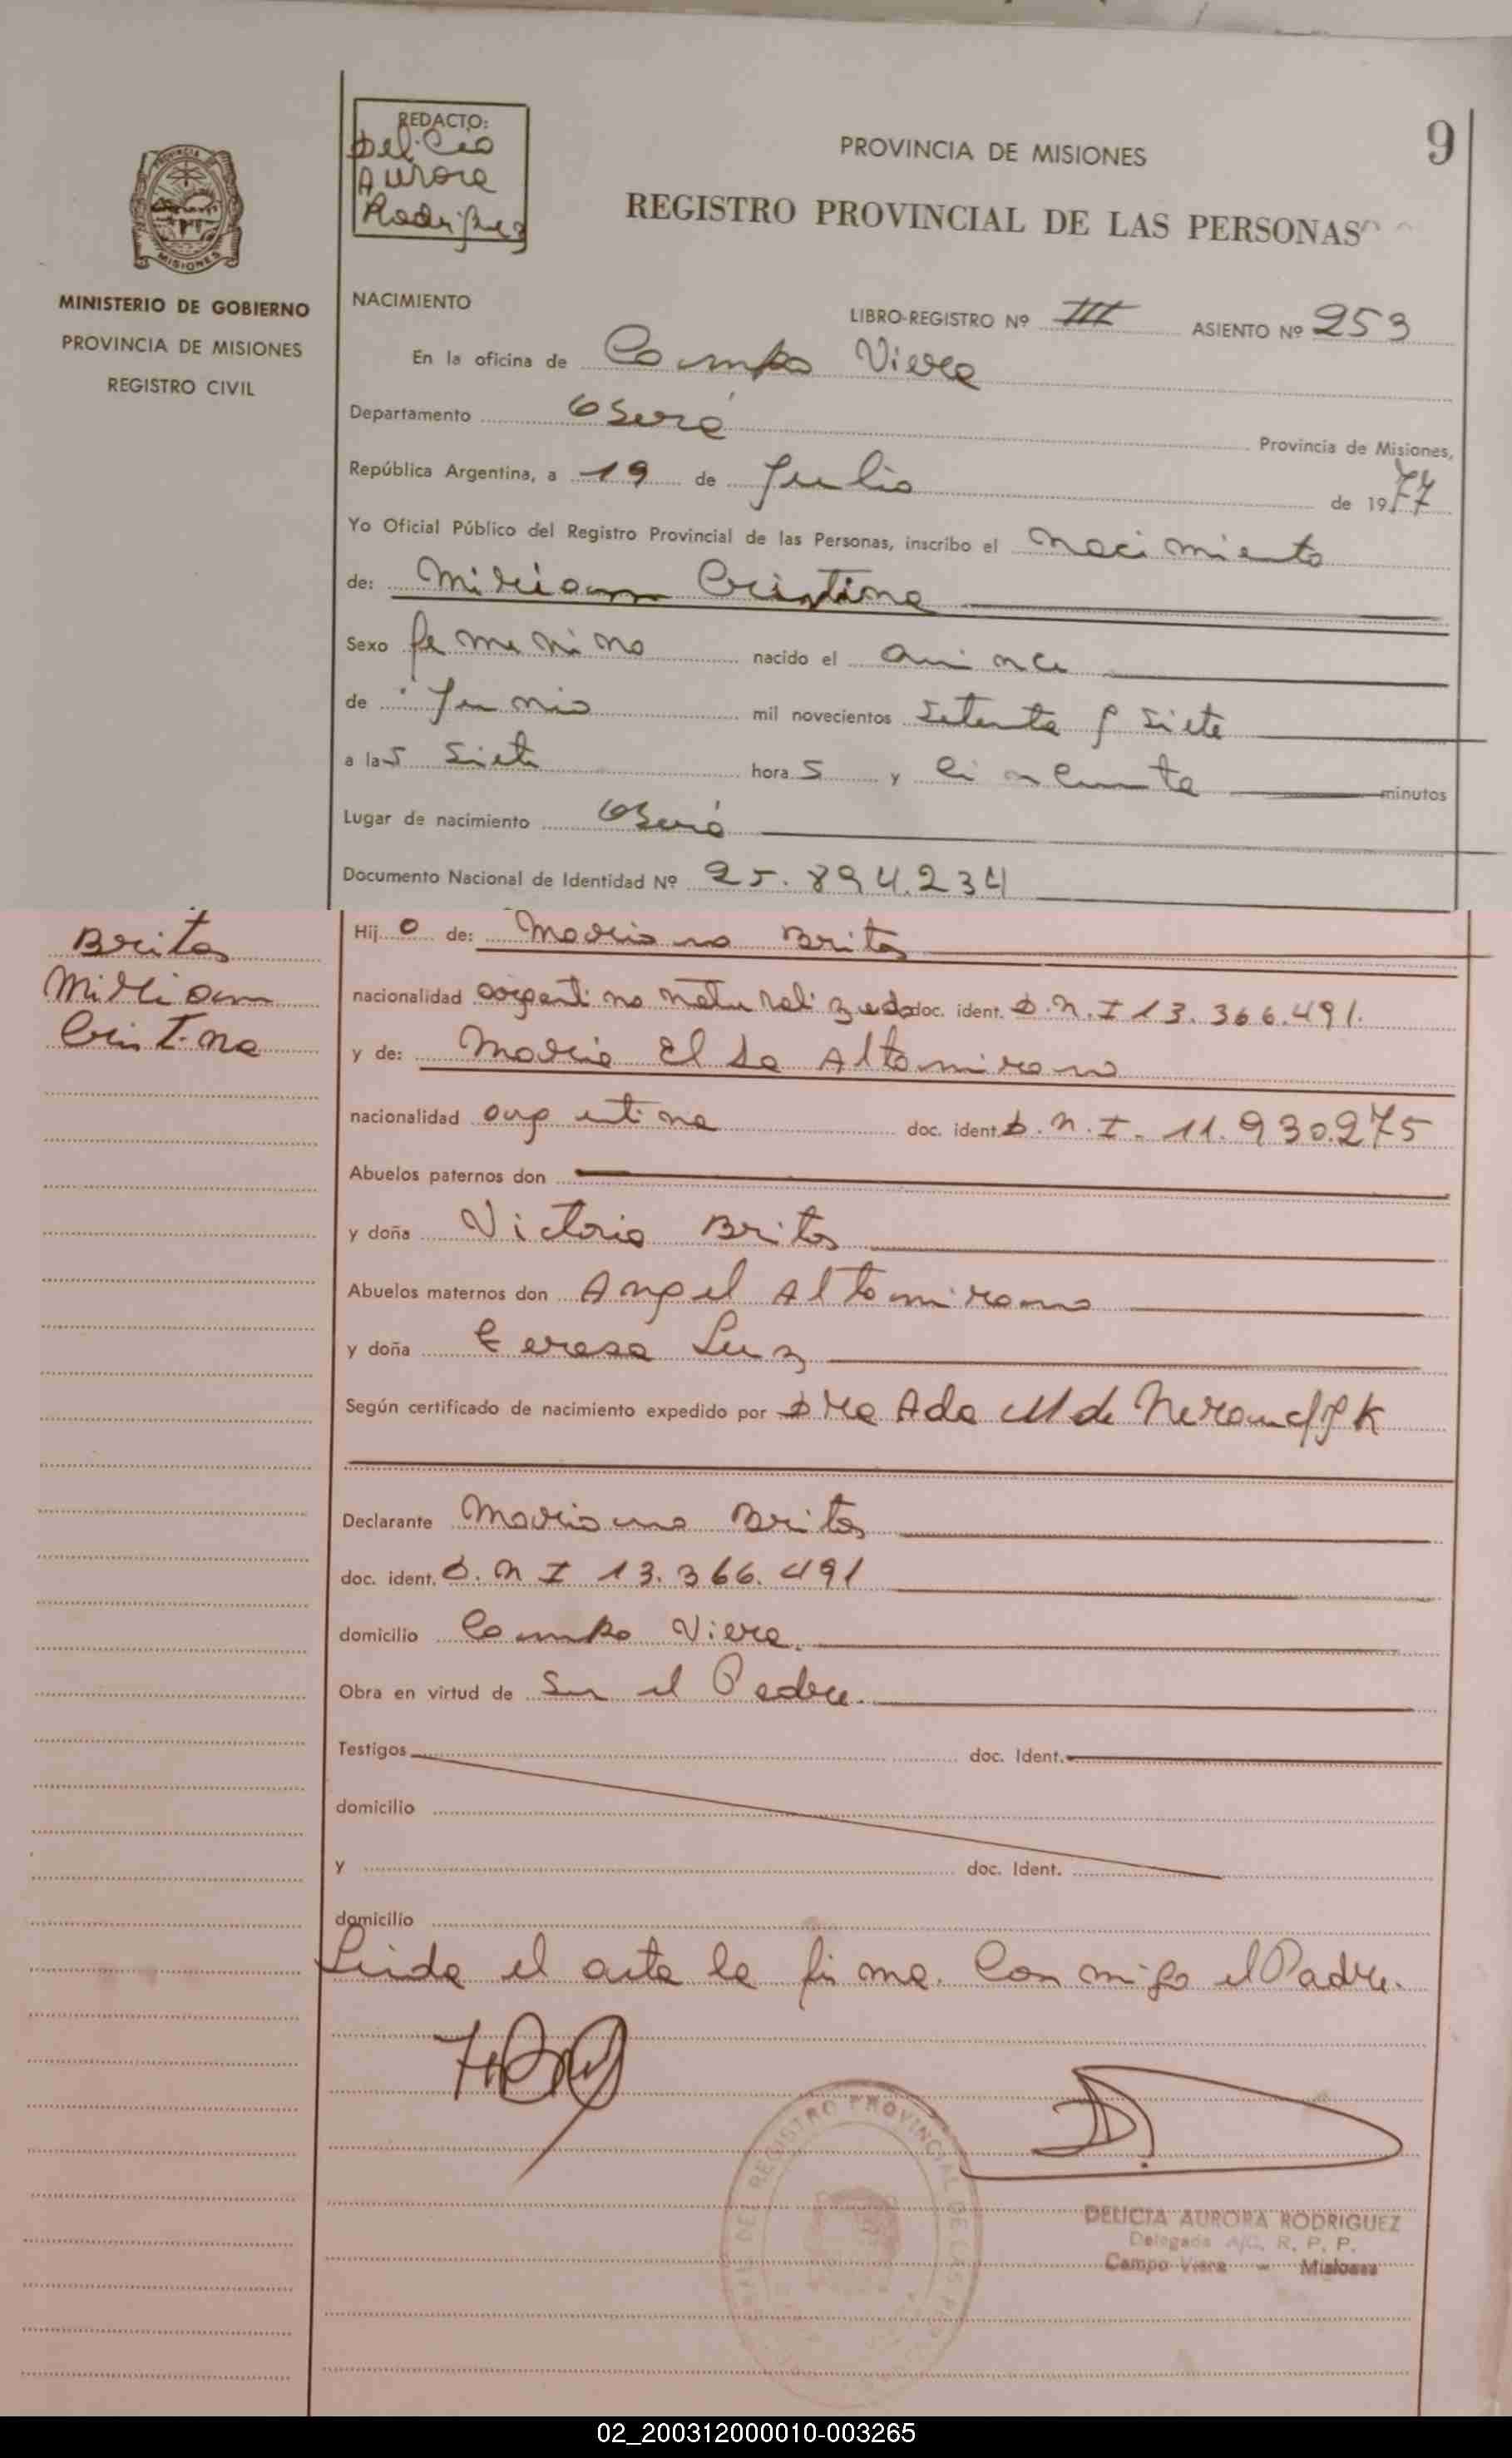 9
REDACTO:
Delicia
Aurora
Rodriguez
PROVINCIA DE MISIONES
REGISTRO PROVINCIAL DE LAS PERSONAS
MISIONES
MINISTERIO DE GOBIERNO
PROVINCIA DE MISIONES
REGISTRO CIVIL
NACIMIENTO
LIBRO-REGISTRO Nº III ASIENTO Nº 253
En la oficina de Campo Viera
Departamento Oberá Provincia de Misiones,
República Argentina, a 19 de Julio de 1977
Yo Oficial Público del Registro Provincial de las Personas, inscribo el nacimiento
de: Miriam Cristina
Sexo femenino nacido el quince
de Junio mil novecientos setenta y siete
a las siete horas y cincuenta minutos
Lugar de nacimiento Oberá
Documento Nacional de Identidad Nº 25.894.234
Britos
Miriam
Cristina
Hijo de: Mariano Britos
nacionalidad argentino naturalizado doc. ident. D.N.I 13.366.491.
y de: Maria Elsa Altamirano
nacionalidad argentina doc. ident. D.N.I. 11.930.275
Abuelos paternos don
y doña Victoria Britos
Abuelos maternos don Angel Altamirano
y doña Teresa Luz
Según certificado de nacimiento expedido por Dra Ada M de
Declarante Mariano Britos
doc. ident. D.N I 13.366.491
domicilio Campo Viera.
Obra en virtud de Ser el Padre.
Testigos doc. Ident.
domicilio
y doc. Ident.
domicilio
Leida el acta la firma. Con migo el Padre.
REGISTRO PROVINCIAL DE LAS
DELICIA AURORA RODRIGUEZ
Delegada A/C. R. P. P.
Campo Viera - Misiones
02_200312000010-003265